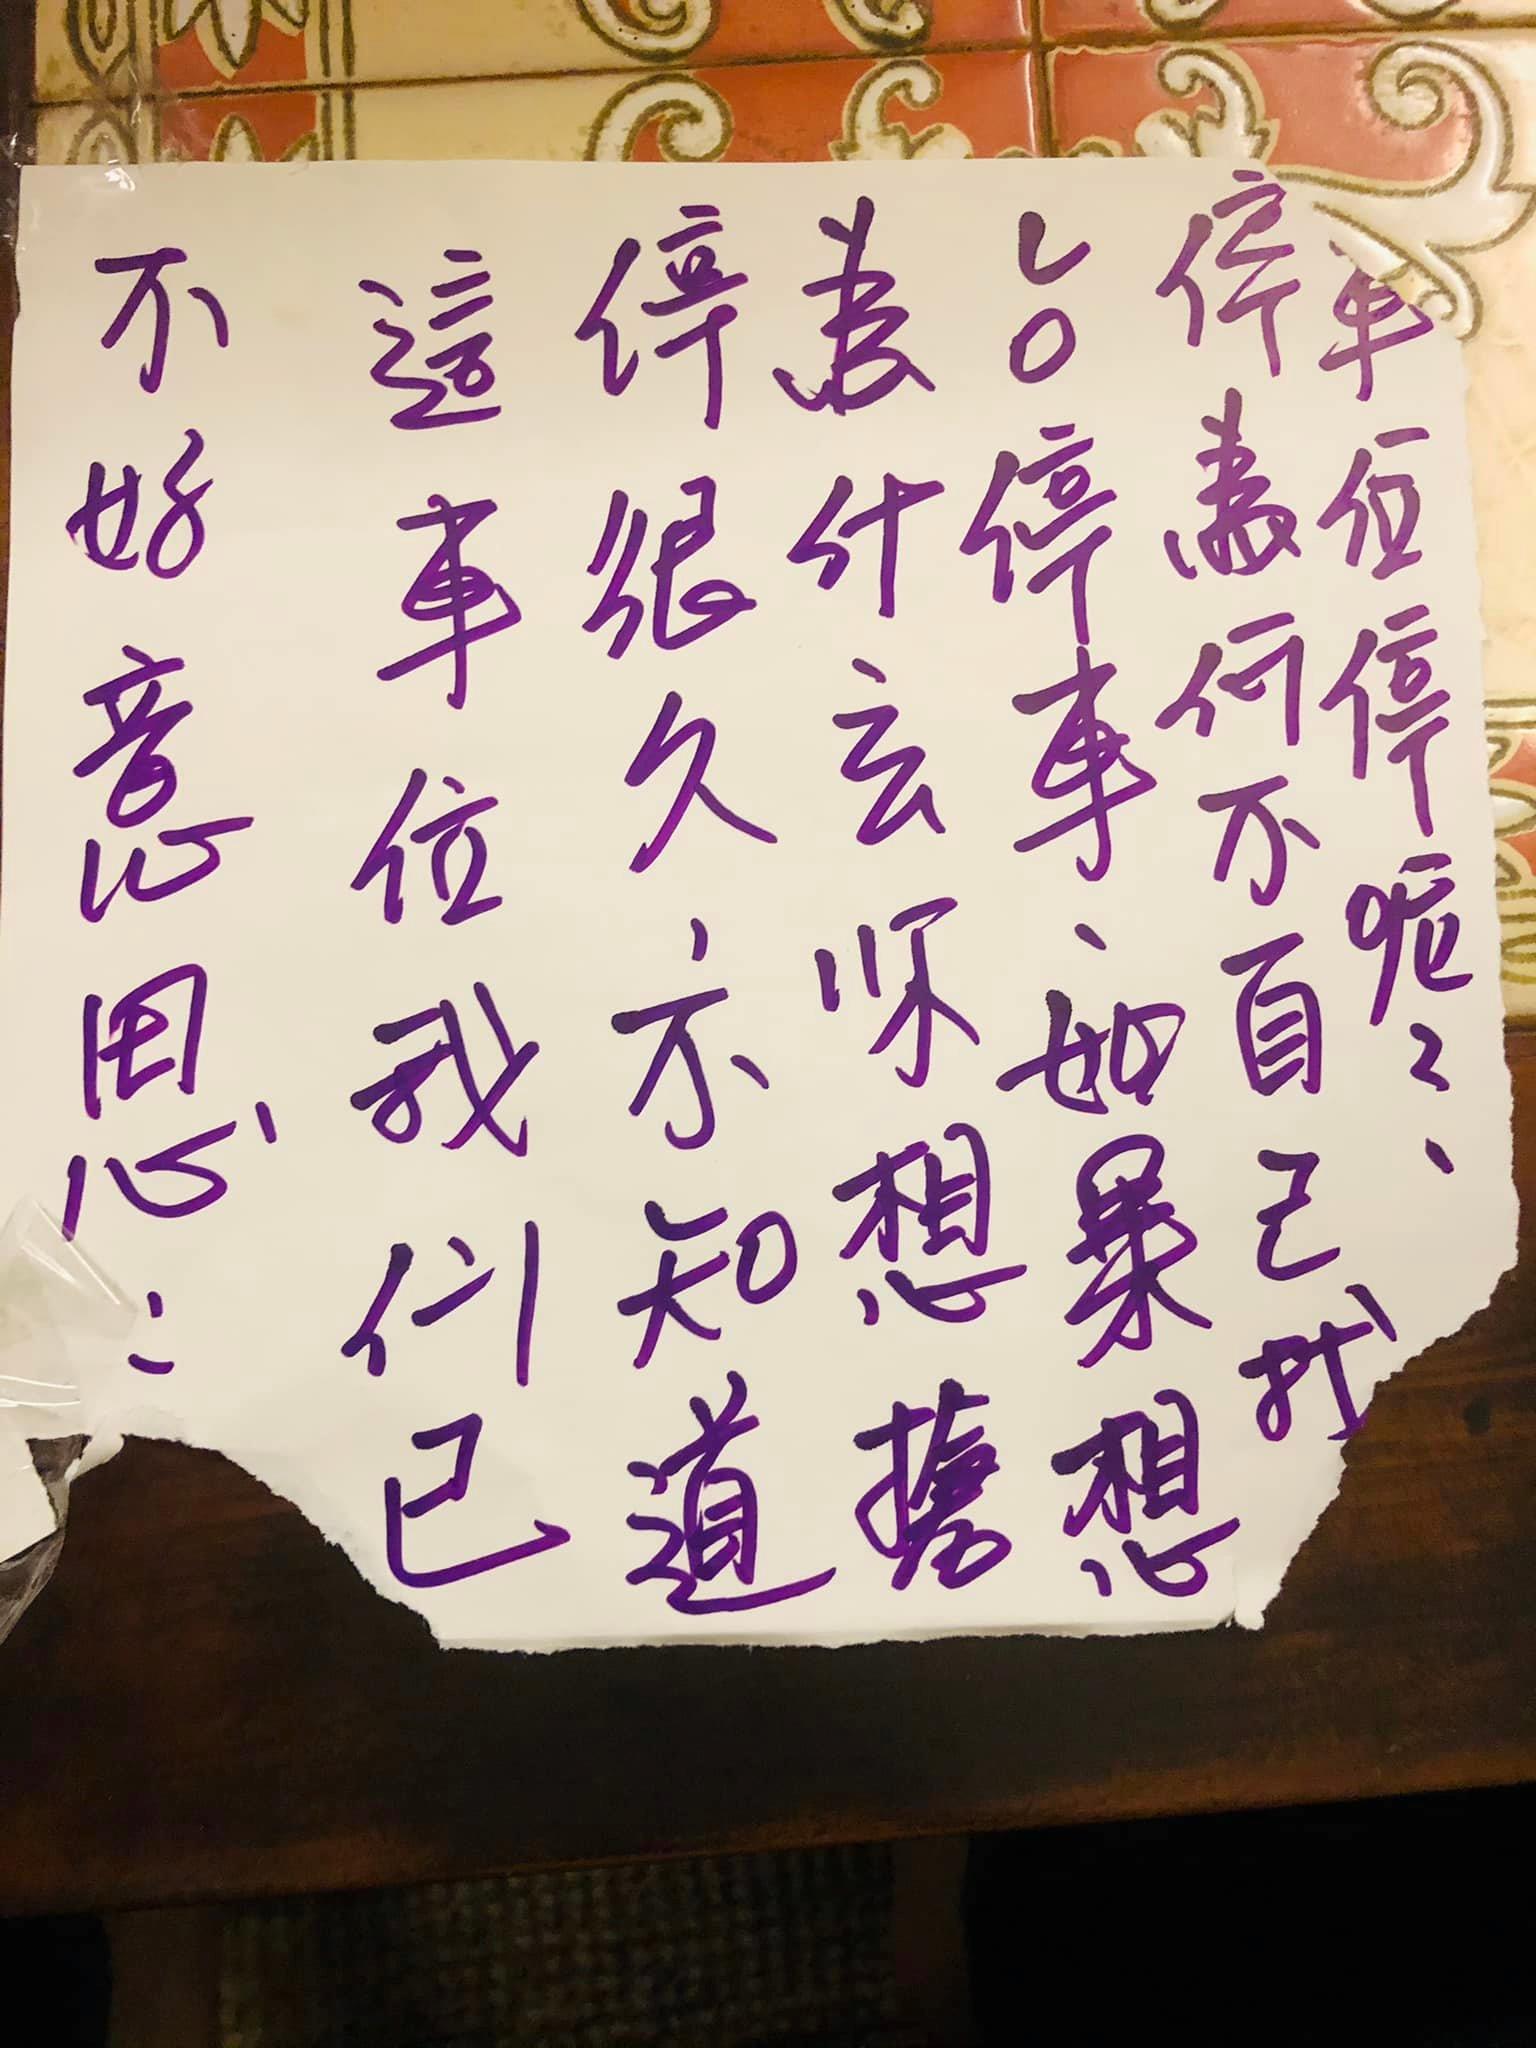 不好意思：
這車位我們已
停很久、不知道
為什么你想搶
占停車、如果想
停為何不自己找
車位停呢